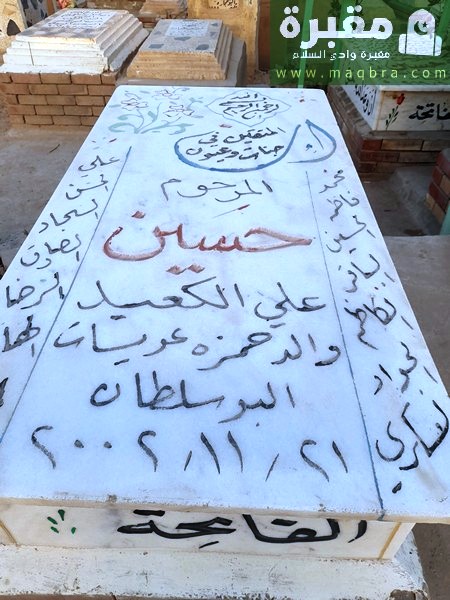 مقبرة
مقبرة وادي السلام
www.maqbra.com
بسم الله الرحمن الرحيم
إن المتقين في
جنات وعيون
المرحوم
حسين
علي الكعيد
والد حمزه عويسات
البو سلطان
٢٠٠٢/١١/٢١
محمد فاطمه الحسين الباقر الكاظم الجواد العسكري
علي الحسن السجاد الصادق الرضا الهادي
الفاتحة
الفاتحة